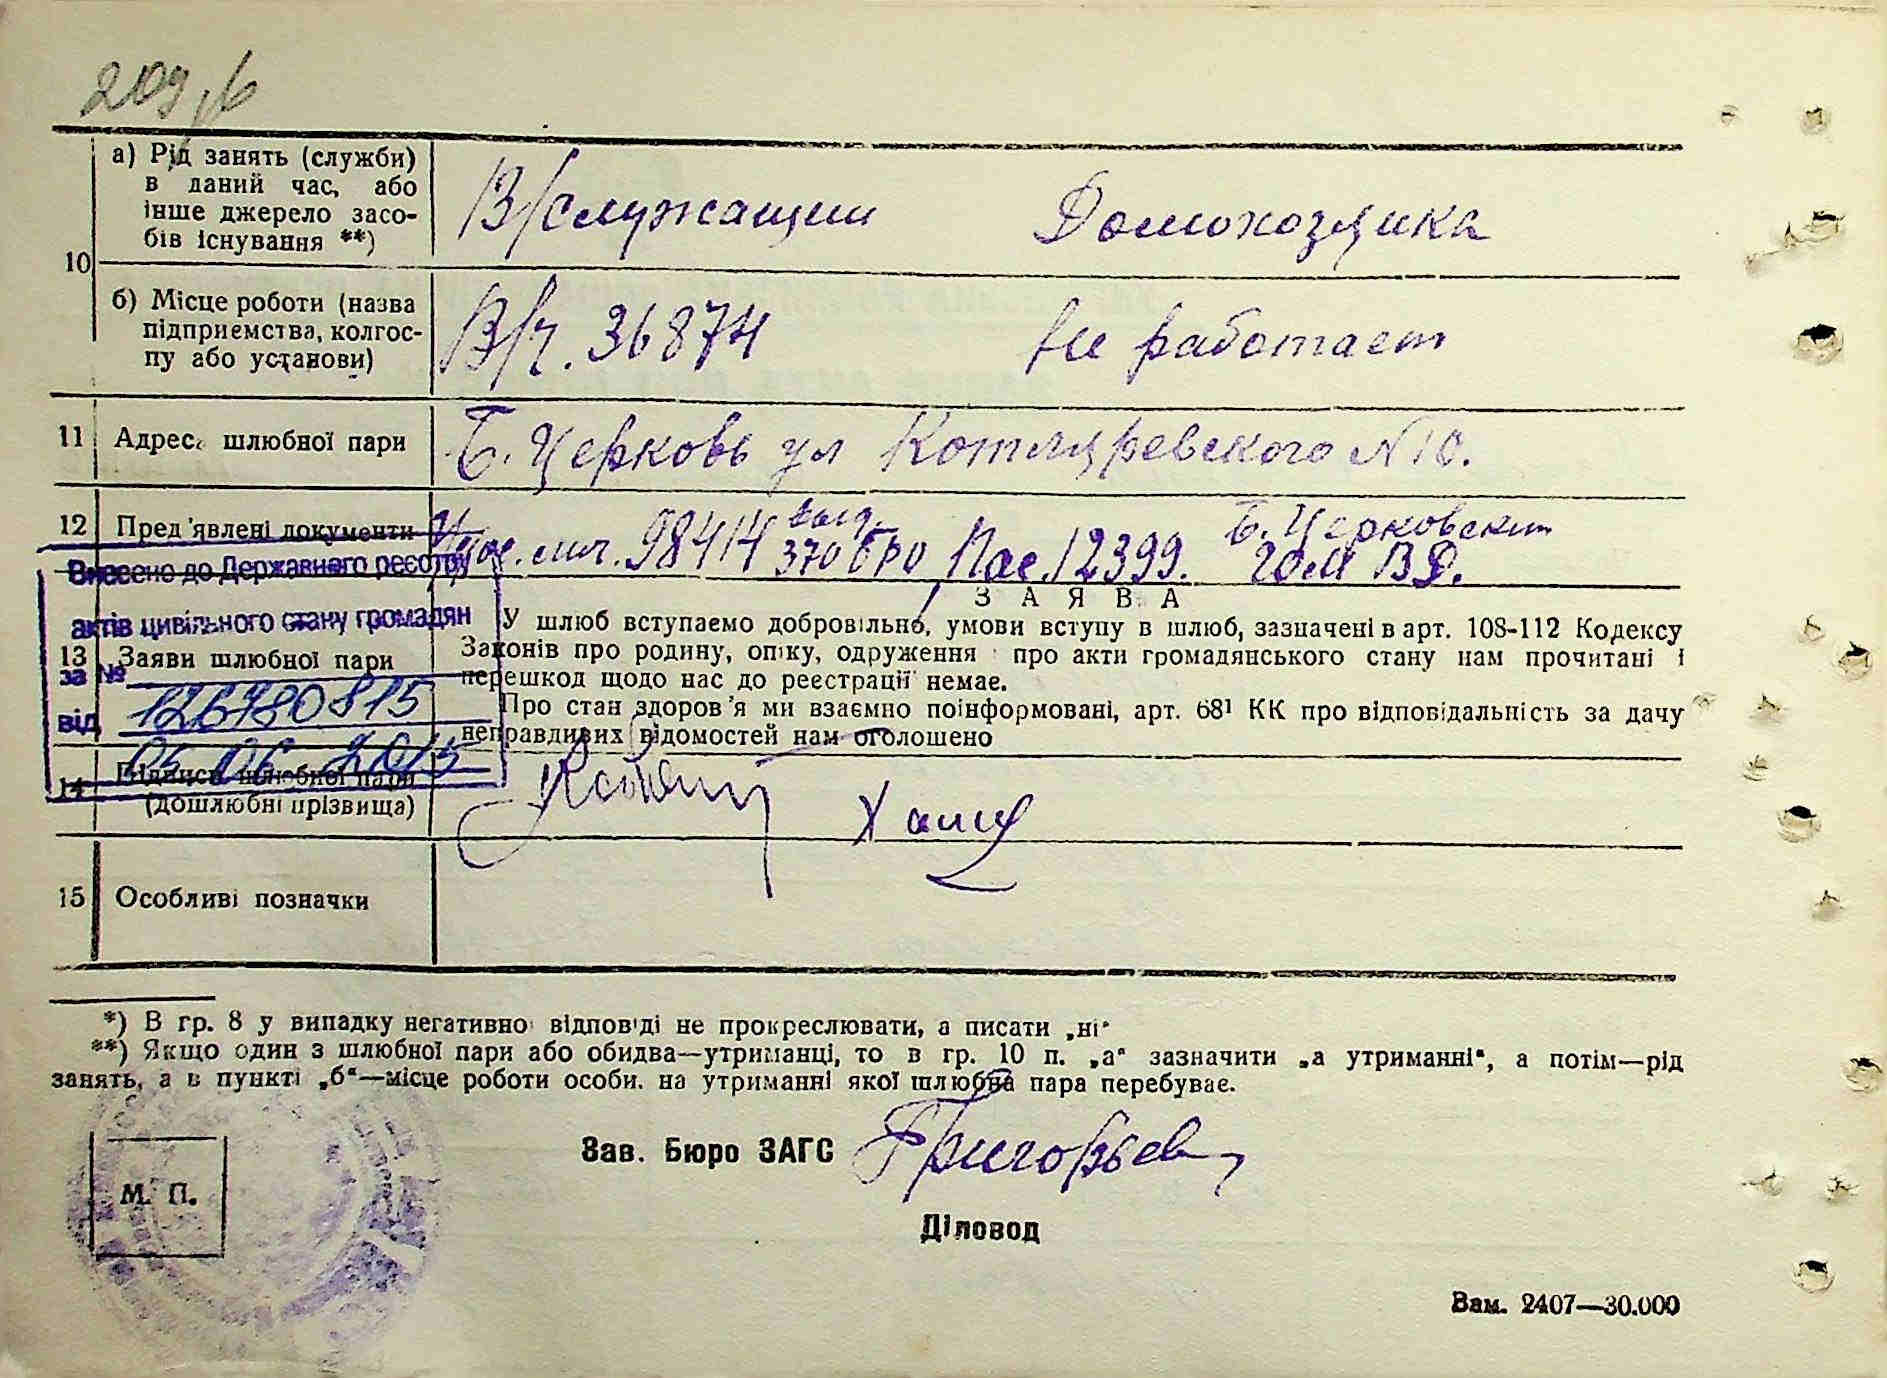 209
10
а) Рід занять (служби) в даний час, або інше джерело засобів існування **)
В/служащии
Домохозяика
б) Місце роботи (назва підприємства, колгоспу або установи)
В/ч. 36874
не работает
11 Адреса шлюбної пари
Б. Церковь ул Котляревского N 10.
12 Пред'явлені документи
Удос. лич. 98414 выд. 370 Пас. 12399. Б. Церковским ГОМ ВД.
Внесено до Державного реєстру
актів цивільного стану громадян
за № 126780815
від 05 06 2015
13 Заяви шлюбної пари
ЗАЯВА
У шлюб вступаемо добровільно, умови вступу в шлюб, зазначені в арт. 108-112 Кодексу
Законів про родину, опіку, одруження про акти громадянського стану нам прочитані і
перешкод щодо нас до реєстрації немає.
Про стан здоров'я ми взаємно поінформовані, арт. 68¹ КК про відповідальність за дачу
неправдивих відомостей нам оголошено
14 Підписи шлюбної пари
(дошлюбні прізвища)
15 Особливі позначки
*) В гр. 8 у випадку негативної відповіді не прокреслювати, а писати „ні"
**) Якщо один з шлюбної пари або обидва—утриманці, то в гр. 10 п. „а" зазначити „а утриманні", а потім—рід
занять, а в пункті „б"—місце роботи особи. на утриманні якої шлюбна пара перебуває.
Зав. Бюро ЗАГС Григорьев
М. П.
Діловод
Зам. 2407—30.000